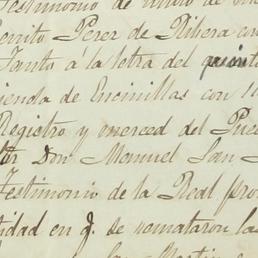 Testimonio de
Benito Perez de Ribera en
Tanto á la letra del quinto
ienda de Encinillas con
Registro y merced del Pue
Don Manuel San
Testimonio de la Real pro
tidad en q. se remataron las